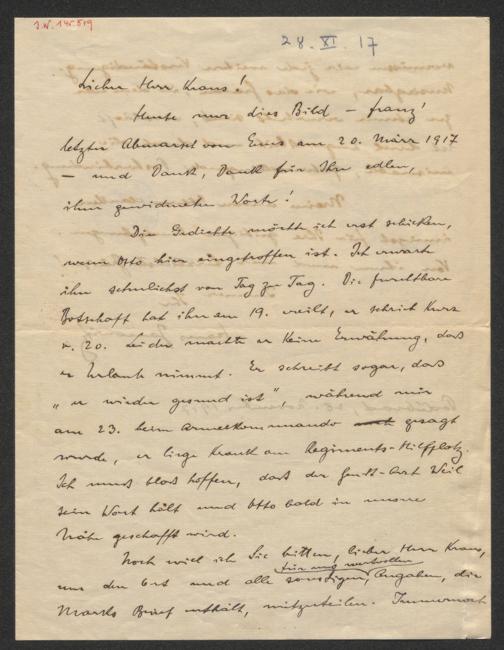 I.N. 145.519
28. XI. 17
Lieber Herr Kraus!
Heute nur dies Bild – Franz'
letzter Abmarsch von Enns am 20. März 1917
– und Dank, Dank für Ihre edlen,
ihm gewidmeten Worte!
Die Gedichte möchte ich erst schicken,
wenn Otto hier eingetroffen ist. Ich erwarte
ihn sehnlichst von Tag zu Tag. Die furchtbare
Botschaft hat ihn am 19. ereilt, er schrieb kurz
v. 20. Leider machte er keine Erwähnung, daß
er Urlaub nimmt. Er schreibt sogar, daß
„er wieder gesund ist", während mir
am 23. beim Armeekommando gesagt
wurde, er liege krank am Regiments-Hilfsplatz.
Ich muß bloß hoffen, daß der Arzt Weil
sein Wort hält und Otto bald in unsere
Nähe geschafft wird.
Noch will ich Sie bitten, lieber Herr Kraus,
für uns wertvollen
uns den Ort und alle sonstigen Angaben, die
Brief enthält, mitzuteilen. Immer noch